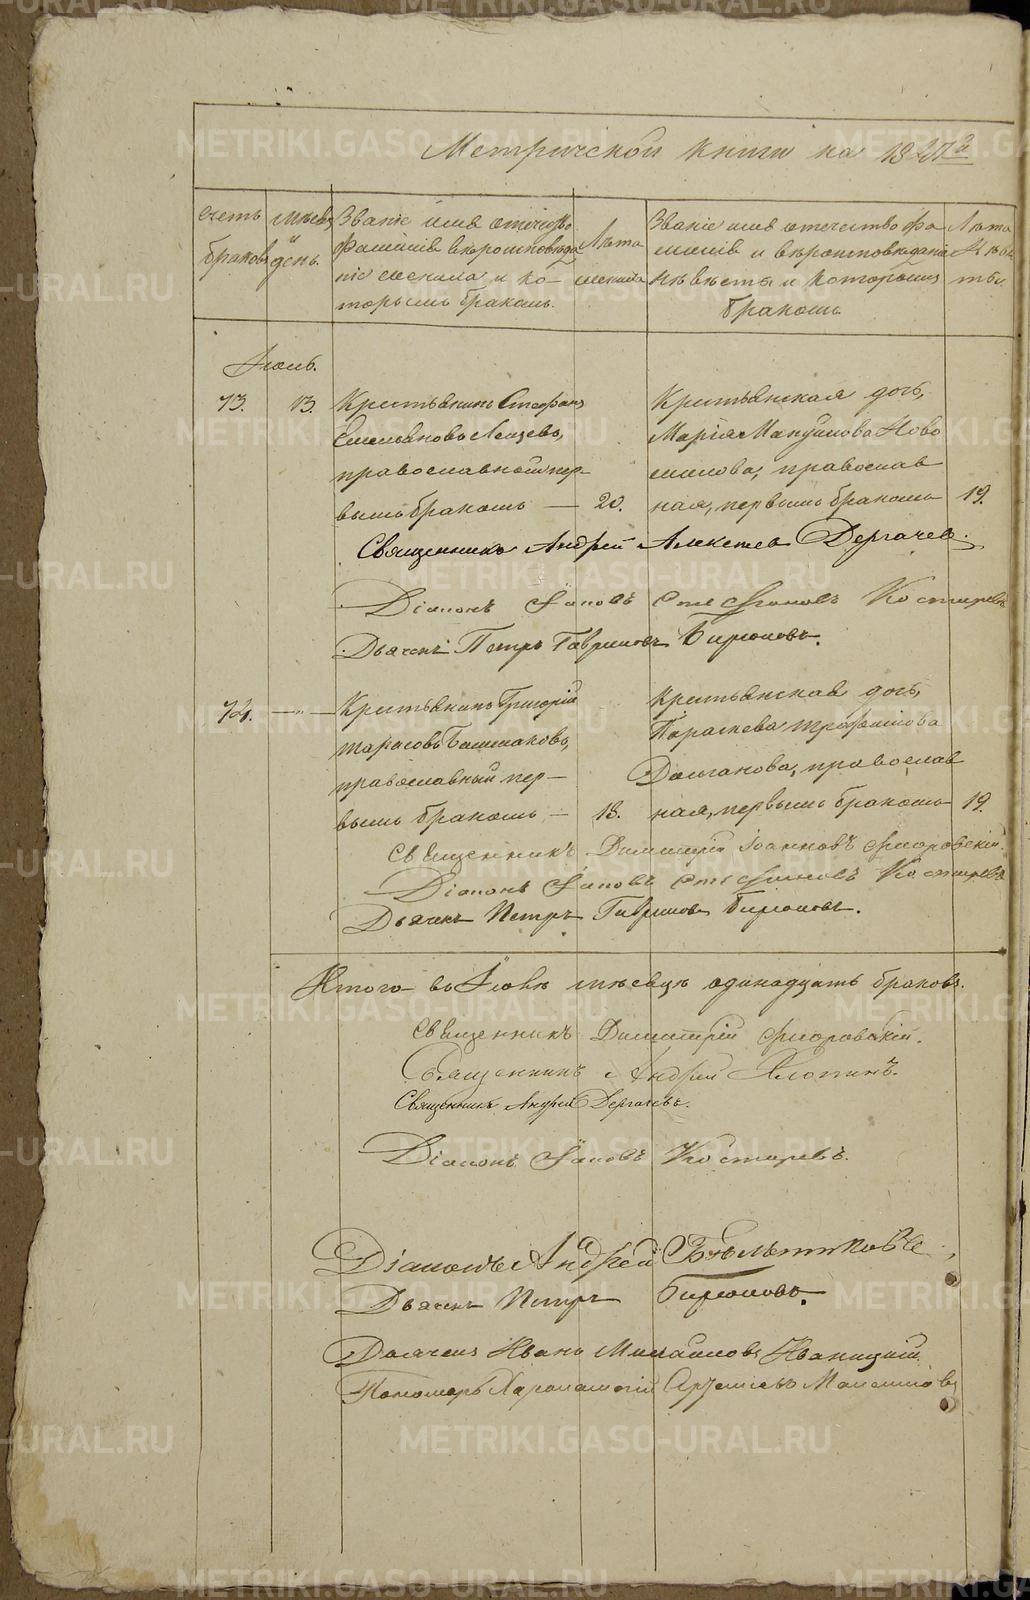 Метрической книги на 1847й
Счетъ браковъ
Мѣсяцъ и день.
Званіе имя отечество
фамилія вѣроисповѣда
ніе жениха и ко-
торымъ бракомъ.
Лѣта
жениха
Званіе имя отечество фа
милія и вѣроисповѣдані
невѣсты и которымъ
бракомъ
Лѣта
невѣс
ты.
Іюль.
73. 13. Крестьянинъ Стефанъ
Емельяновъ
православный пер-
вымъ бракомъ — 20.
Крестьянская дочь,
Марія Мануилова Ново
силова, православ
ная, первымъ бракомъ 19.
Священникъ Андрей Алексѣевъ Дергачев.
Діаконъ Іаковъ Стефановъ Костыревъ
Дьячекъ Петръ Гавриловъ Бирюковъ.
74. —〃— Крестьянинъ Григорій
Тарасовъ Башмаковъ,
православный пер—
вымъ бракомъ — 18.
Крестьянская дочь,
Параскева Трофимова
Долганова, православ
ная, первымъ бракомъ 19.
Священникъ Димитрій Іоанновъ Флоровскій.
Діаконъ Іаковъ Стефановъ Костыревъ
Дьячекъ Петръ Гавриловъ Бирюковъ.
Итого въ Іюлѣ мѣсяцѣ одинадцать браковъ.
Священникъ Димитрій Флоровскій.
Священникъ Андрей Хлопинъ.
Священникъ Андрей Дергачевъ.
Діаконъ Іаковъ Костыревъ.
Діаконъ Андрей Бѣльтюковъ
Дьячекъ Петръ Бирюковъ.
Дьячекъ Иванъ Михайловъ Иваницкій
Пономарь Харалампій
METRIKI.GASO-URAL.RU